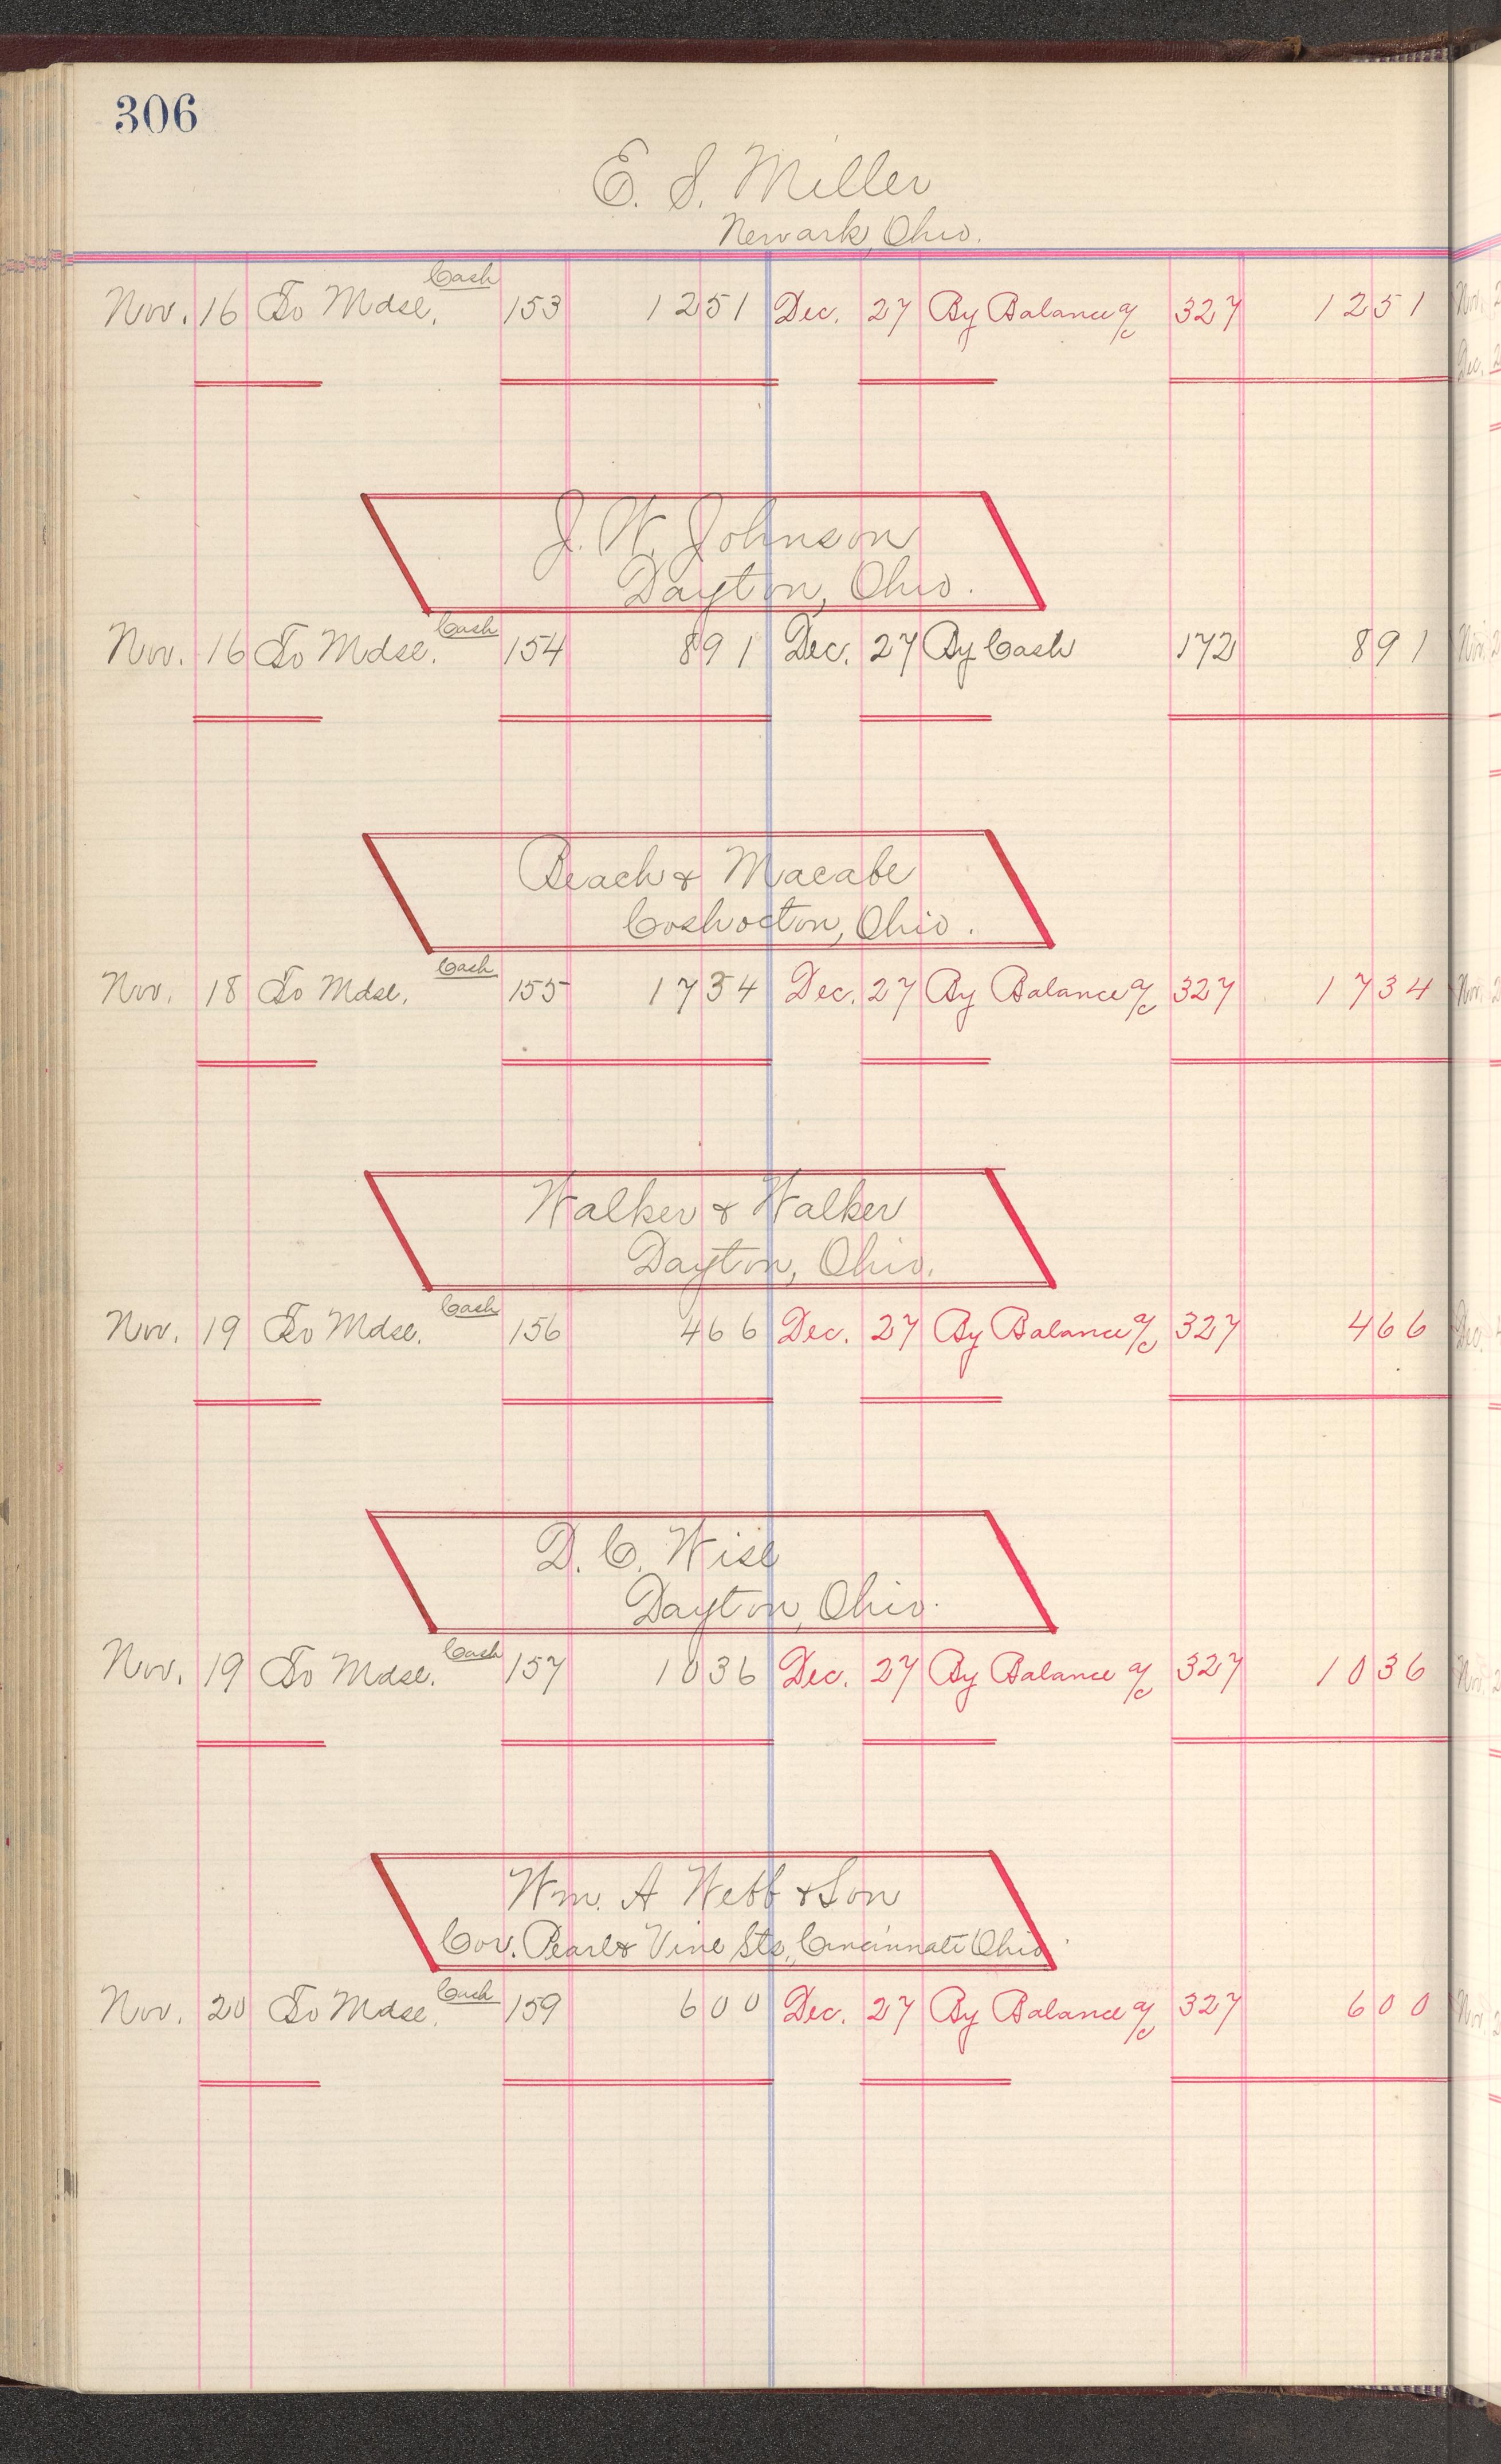 306
E. S. Miller
Newark, Ohio.
Cash
Nov. 16 To Mdse. 153 12 51 Dec. 27 By Balance a/c 327 12 51
J. W. Johnson
Dayton, Ohio.
Cash
Nov. 16 To Mdse. 154 8 91 Dec. 27 By Cash 172 8 91
Beach & Macabe
Coshocton, Ohio.
Cash
Nov. 18 To Mdse. 155 17 34 Dec. 27 By Balance a/c 327 17 34
Walker & Walker
Dayton, Ohio.
Cash
Nov. 19 To Mdse. 156 4 66 Dec. 27 By Balance a/c 327 4 66
D. C. Wise
Dayton, Ohio.
Cash
Nov. 19 To Mdse. 157 10 36 Dec. 27 By Balance a/c 327 10 36
Wm. A Webb & Son
Cor. Pearl & Vine Sts, Cincinnati Ohio.
Cash
Nov. 20 To Mdse. 159 6 00 Dec. 27 By Balance a/c 327 6 00